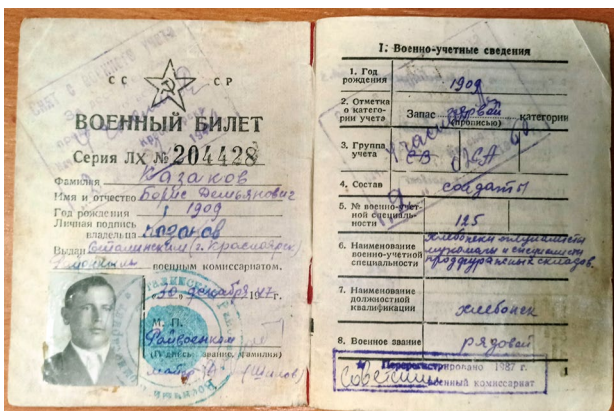 СС СР
ВОЕННЫЙ БИЛЕТ
Серия ЛХ № 204428
Фамилия Казаков
Имя и отчество Борис Демьянович
Год рождения 1909
Личная подпись
владельца Казаков
Выдан Сталинским (г. Красноярск)
военным комиссариатом.
„30“ декабря 47 г.
М. П. Райвоенком
(Подпись, звание, фамилия)
майор
I. Военно-учетные сведения
1. Год рождения 1909
2. Отметка о категории учета Запас первой категории
(прописью)
3. Группа учета СА
4. Состав солдаты
5. № военно-учетной специальности 125
6. Наименование военно-учетной специальности Хлебопеки специалисты
мукомолы и специалисты
продфуражных складов.
7. Наименование должностной квалификации хлебопек
8. Военное звание рядовой
Перерегистрировано 1987 г.
Советский военный комиссариат